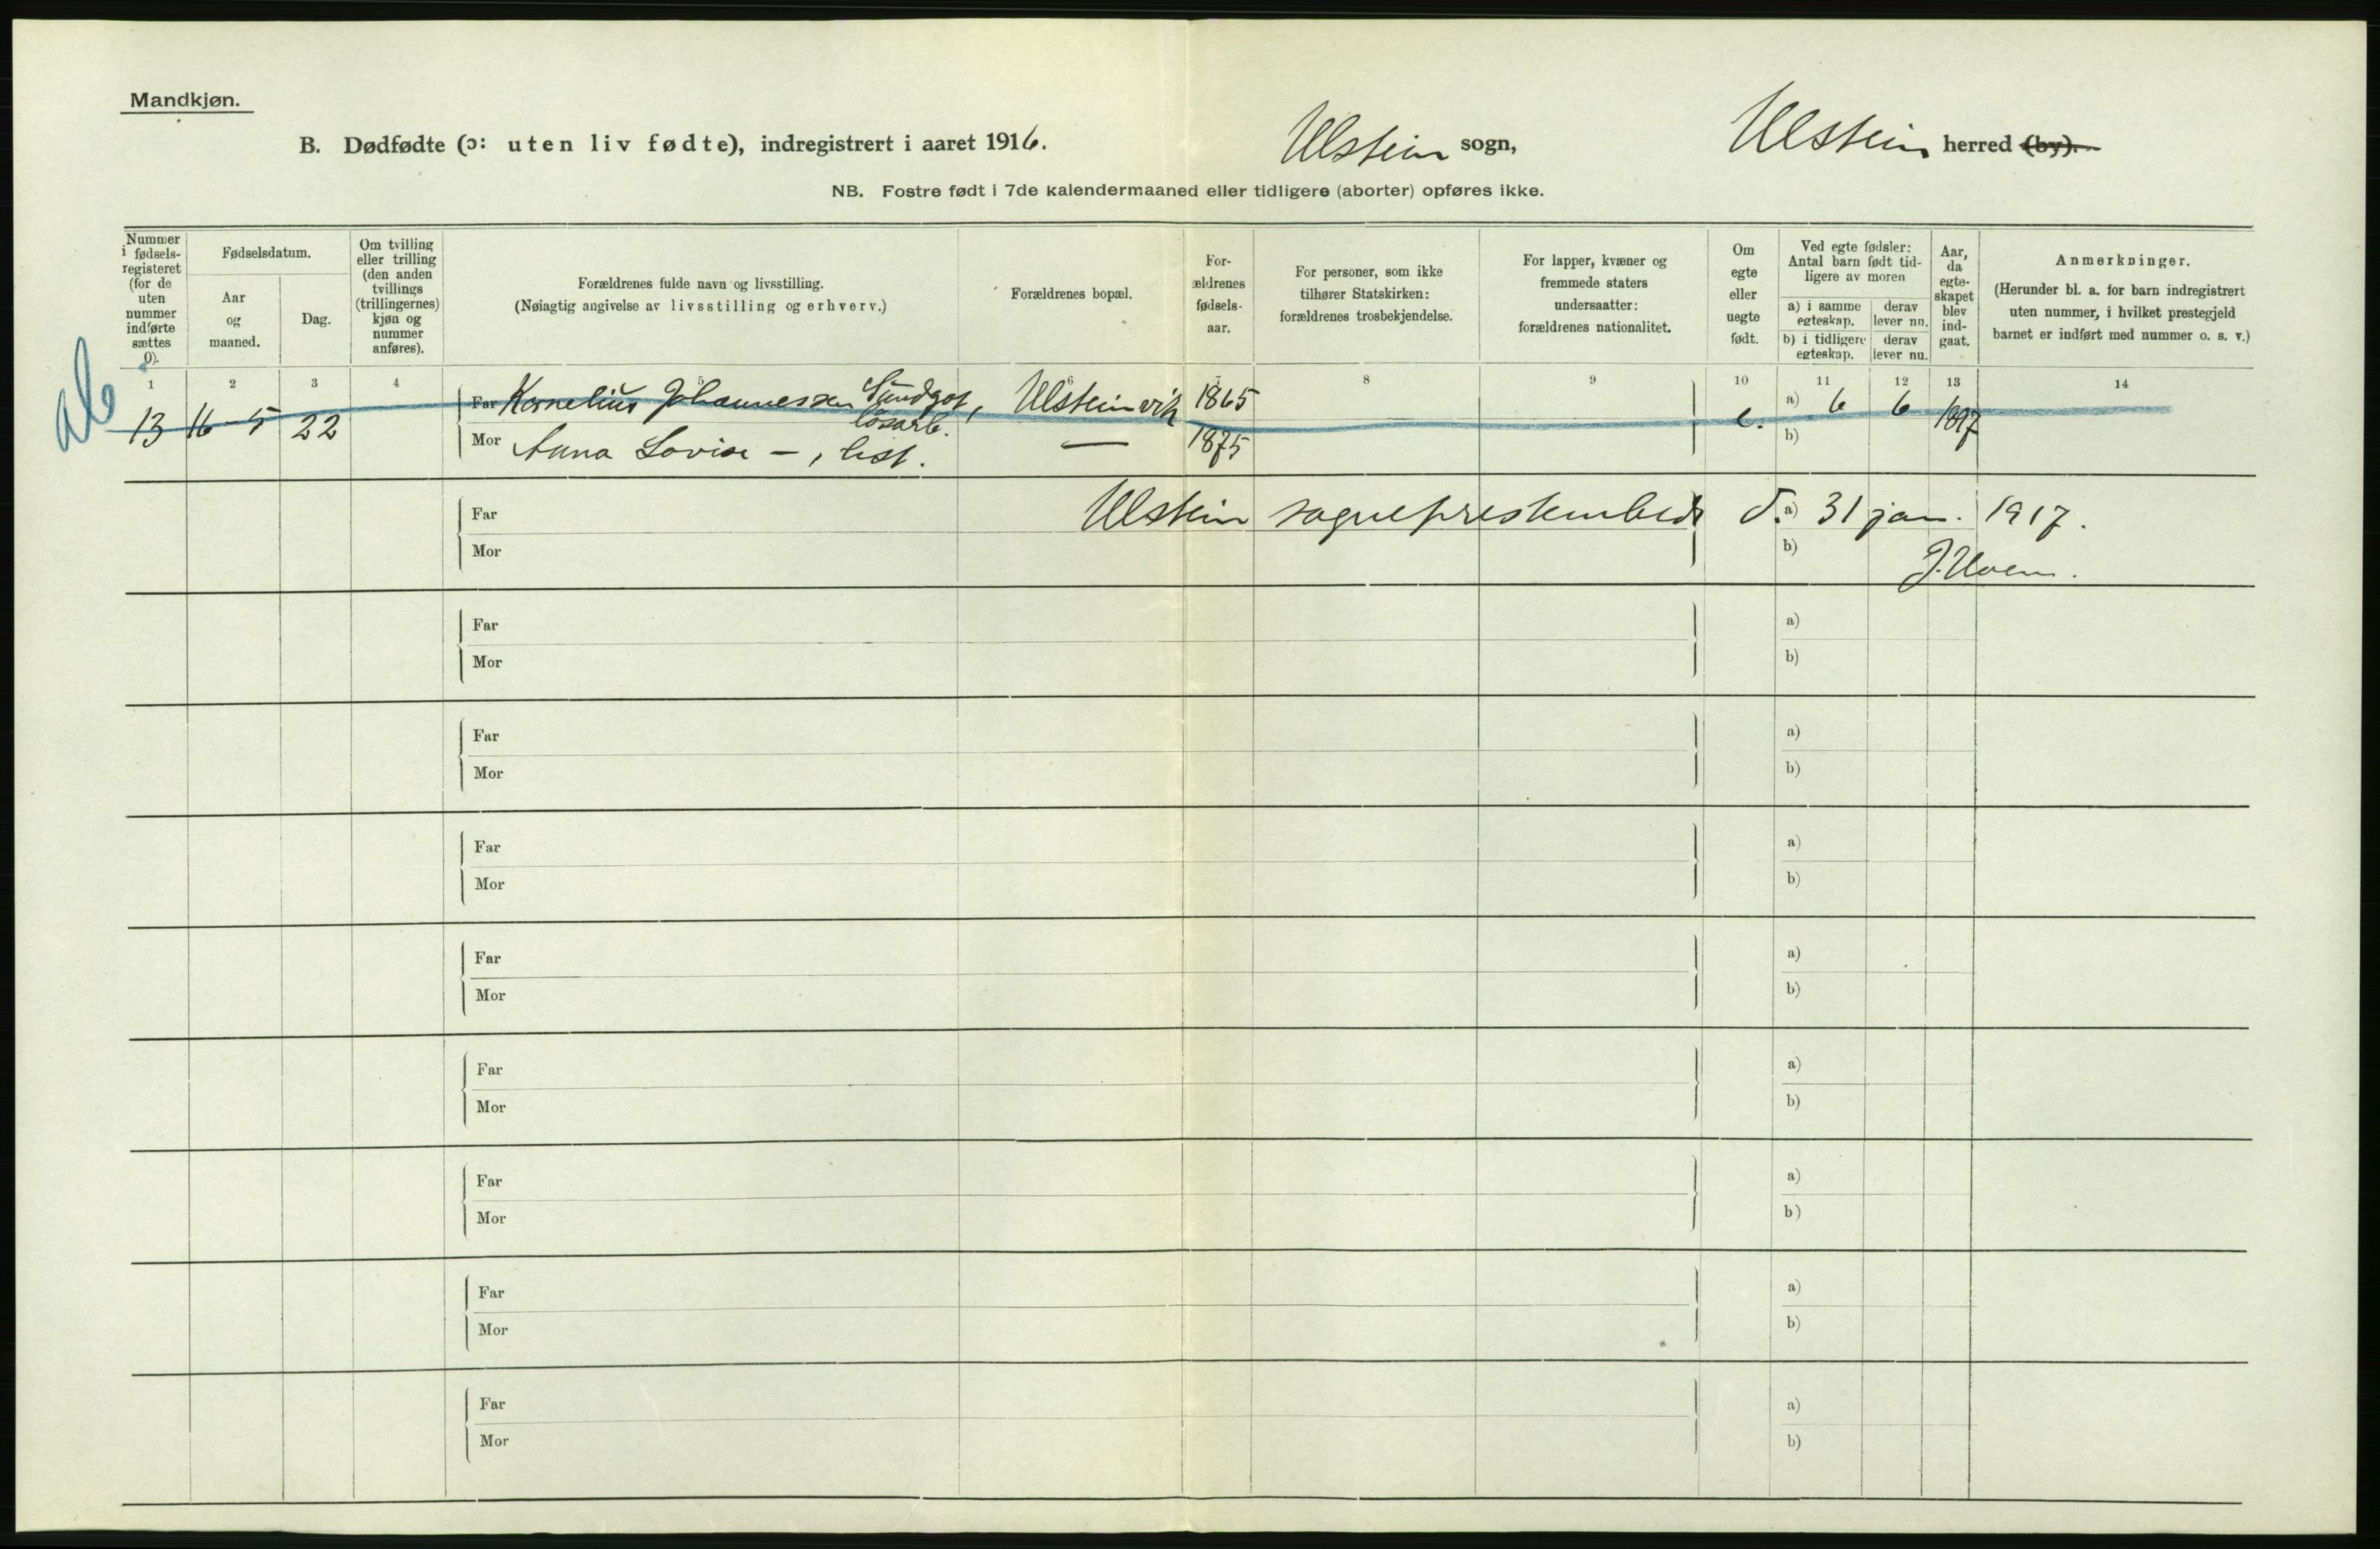 Mandkjøn.
B. Dødfødte (ɔ: uten liv fødte), indregistrert i aaret 1916. Ulstein sogn, Ulstein herred (by).
NB. Fostre født i 7de kalendermaaned eller tidligere (aborter) opføres ikke.
Nummer i fødsels-registeret (for de uten nummer indførte sættes 0).
Fødselsdatum.
Aar og maaned.
Dag.
Om tvilling eller trilling (den anden tvillings (trillingernes) kjøn og nummer anføres).
Forældrenes fulde navn og livsstilling.
(Nøiagtig angivelse av livsstilling og erhverv.)
Forældrenes bopæl.
For-ældrenes fødsels-aar.
For personer, som ikke tilhører Statskirken: forældrenes trosbekjendelse.
For lapper, kvæner og fremmede staters undersaatter: forældrenes nationalitet.
Om egte eller uegte født.
Ved egte fødsler: Antal barn født tid-ligere av moren
a) i samme egteskap.
derav lever nu.
b) i tidligere egteskap.
derav lever nu.
Aar, da egte-skapet blev ind-gaat.
Anmerkninger.
(Herunder bl. a. for barn indregistrert uten nummer, i hvilket prestegjeld barnet er indført med nummer o. s. v.)
1 2 3 4 5 6 7 8 9 10 11 12 13 14
13 16-5 22 Far Kornelius Johannessen Sundgot, løsarb. Ulsteinvik 1865 e. a) 6 6 1897
Mor Anna Lovise —, hst. — 1875 b)
Far Ulstein sogneprestembede d. a) 31 jan. 1917.
Mor b) J. Hoem.
Far a)
Mor b)
Far a)
Mor b)
Far a)
Mor b)
Far a)
Mor b)
Far a)
Mor b)
Far a)
Mor b)
Far a)
Mor b)
Far a)
Mor b)